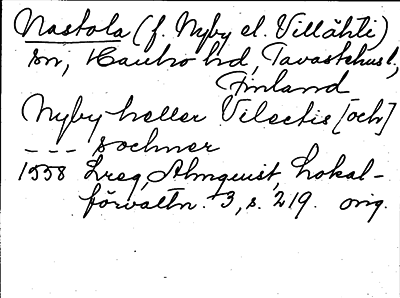 Nastola (f. Nyby el. Villähti)
sn, Hauho hd, Tavastehus l,
Finland
Nyby heller Vilectis [och]
--- sochner
1558 Lreg, Almquist, Lokal-
förvaltn. 3, s. 219. orig.